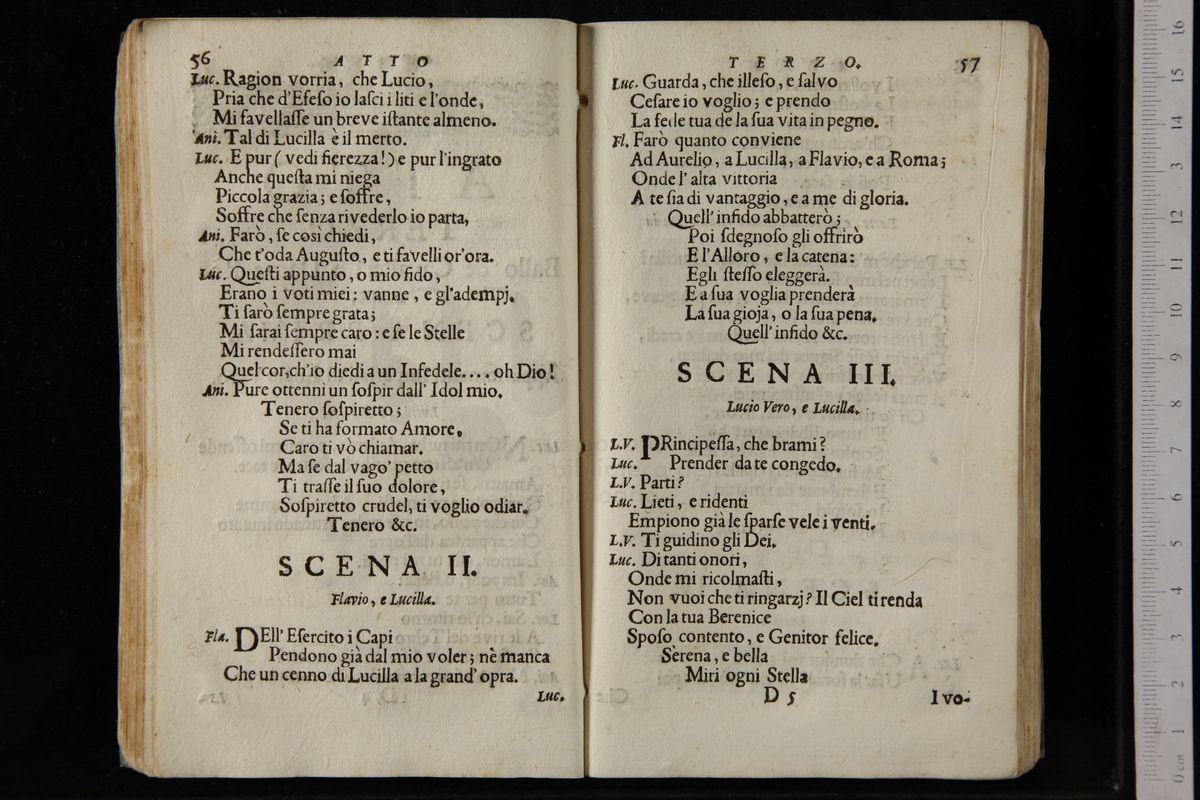 56 ATTO
Luc. Ragion vorria, che Lucio,
Pria che d'Efeſo io laſci i liti e l'onde,
Mi favellaſſe un breve iſtante almeno.
Ani. Tal di Lucilla è il merto.
Luc. E pur ( vedi fierezza! ) e pur l'ingrato
Anche queſta mi niega
Piccola grazia; e ſoffre,
Soffre che ſenza rivederlo io parta,
Ani. Farò, ſe così chiedi,
Che t'oda Auguſto, e ti favelli or'ora.
Luc. Queſti appunto, o mio fido,
Erano i voti miei: vanne, e gl'adempj.
Ti ſarò ſempre grata;
Mi ſarai ſempre caro: e ſe le Stelle
Mi rendeſſero mai
Quel cor, ch'io diedi a un Infedele.... oh Dio!
Ani. Pure ottenni un ſoſpir dall' Idol mio.
Tenero ſoſpiretto;
Se ti ha formato Amore,
Caro ti vò chiamar.
Ma ſe dal vago' petto
Ti traſſe il ſuo dolore,
Soſpiretto crudel, ti voglio odiar.
Tenero &c.
SCENA II.
Flavio, e Lucilla.
Fla. DEll' Eſercito i Capi
Pendono già dal mio voler; nè manca
Che un cenno di Lucilla a la grand' opra.
Luc.
TERZO. 57
Luc. Guarda, che illeſo, e ſalvo
Ceſare io voglio; e prendo
La fede tua de la ſua vita in pegno.
Fl. Farò quanto conviene
Ad Aurelio, a Lucilla, a Flavio, e a Roma;
Onde l' alta vittoria
A te ſia di vantaggio, e a me di gloria.
Quell' infido abbatterò;
Poi ſdegnoſo gli offrirò
E l'Alloro, e la catena:
Egli ſteſſo eleggerà.
E a ſua voglia prenderà
La ſua gioja, o la ſua pena.
Quell' infido &c.
SCENA III.
Lucio Vero, e Lucilla.
L.V. PRincipeſſa, che brami?
Luc. Prender da te congedo.
L.V. Parti?
Luc. Lieti, e ridenti
Empiono già le ſparſe vele i venti.
L.V. Ti guidino gli Dei.
Luc. Di tanti onori,
Onde mi ricolmaſti,
Non vuoi che ti ringarzj? Il Ciel ti renda
Con la tua Berenice
Spoſo contento, e Genitor felice.
Serena, e bella
Miri ogni Stella
D 5 I vo-
0 cm 1 2 3 4 5 6 7 8 9 10 11 12 13 14 15 16